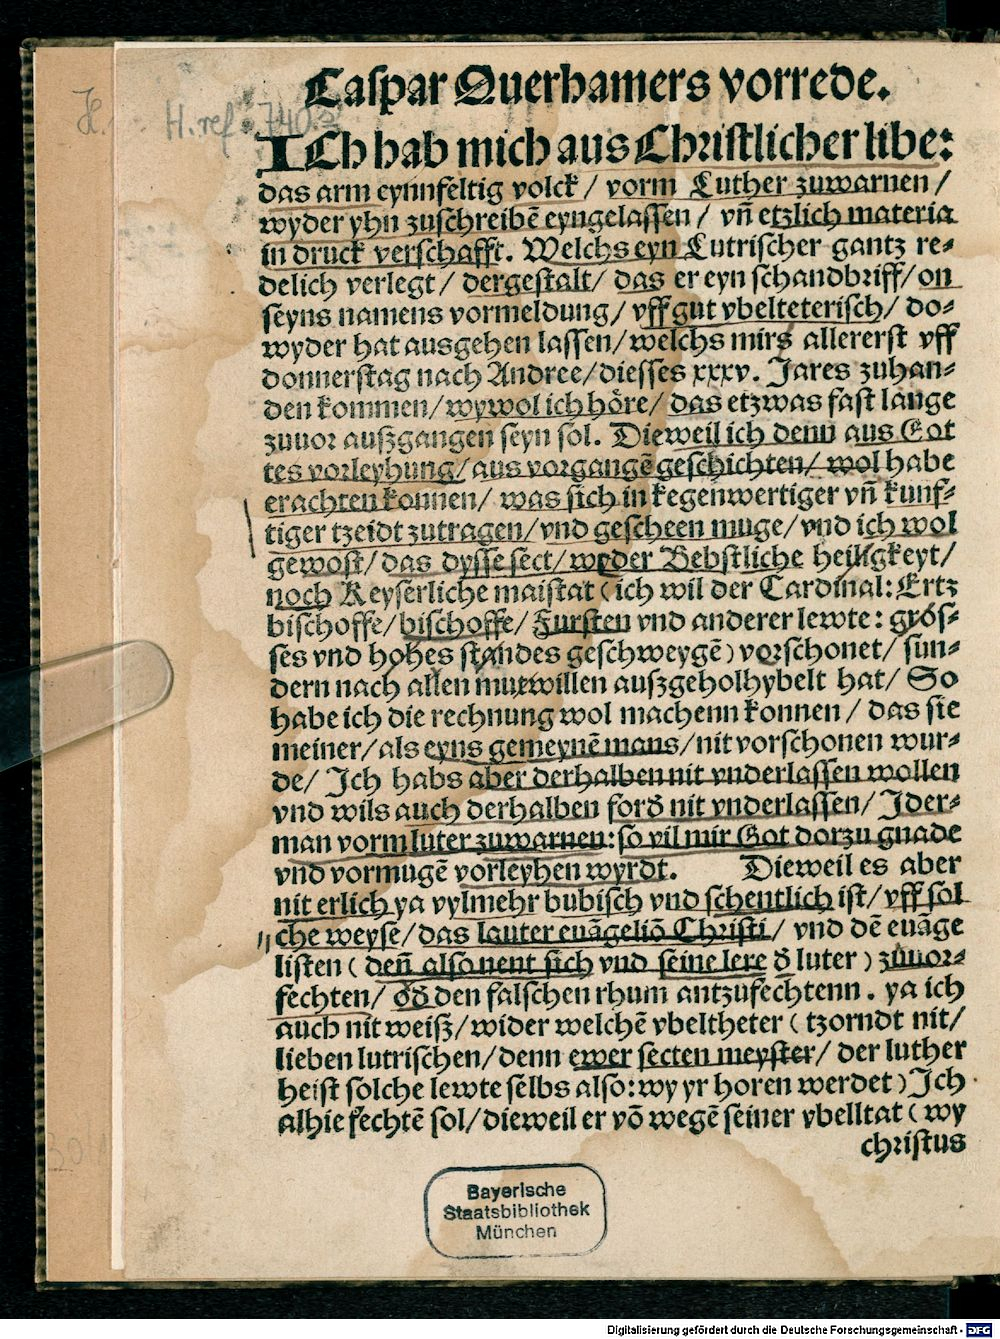 H. ref. 740.
Caspar Querhamers vorrede.
ICh hab mich aus Christlicher libe:
das arm eynnfeltig volck / vorm Luther zuwarnen /
wyder yhn zuschreibē eyngelassen / vñ etzlich materia
in druck verschafft. Welchs eyn Lutrischer gantz re-
delich verlegt / dergestalt / das er eyn schandbriff / on
seyns namens vormeldung / vff gut vbelteterisch / do-
wyder hat ausgehen lassen / welchs mirs allererst vff
donnerstag nach Andree / diesses xxxv. Jares zuhan-
den kommen / wywol ich höre / das etzwas fast lange
zuuor außgangen seyn sol. Dieweil ich denn aus Got
tes vorleyhung / aus vorgangē geschichten / wol habe
erachten konnen / was sich in kegenwertiger vñ kunf-
tiger tzeidt zutragen / vnd gescheen muge / vnd ich wol
gewost / das dysse sect / weder Bebstliche heiligkeyt /
noch Keyserliche maistat ( ich wil der Cardinal: Ertz
bischoffe / bischoffe / Fursten vnd anderer lewte: grös-
ses vnd hohes standes geschweygē ) vorschonet / sun-
dern nach allen mutwillen außgeholhybelt hat / So
habe ich die rechnung wol machenn konnen / das sie
meiner / als eyns gemeynē mans / nit vorschonen wur-
de / Ich habs aber derhalben nit vnderlassen wollen
vnd wils auch derhalben ford nit vnderlassen / Ider-
man vorm luter zuwarnen: so vil mir Got dorzu gnade
vnd vormugē vorleyhen wyrdt. Dieweil es aber
nit erlich ya vylmehr bubisch vnd schentlich ist / vff sol
che weyse / das lauter euāgeliō Christi / vnd dē euāge
listen ( deñ also nent sich vnd seine lere d luter ) zuuor-
fechten / odd den falschen rhum antzufechtenn. ya ich
auch nit weiß / wider welchē vbeltheter ( tzorndt nit /
lieben lutrischen / denn ewer secten meyster / der luther
heist solche lewte selbs also: wy yr horen werdet ) Ich
alhie fechtē sol / dieweil er vō wegē seiner vbelltat ( wy
christus
Bayerische
Staatsbibliothek
München
Digitalisierung gefördert durch die Deutsche Forschungsgemeinschaft - DFG